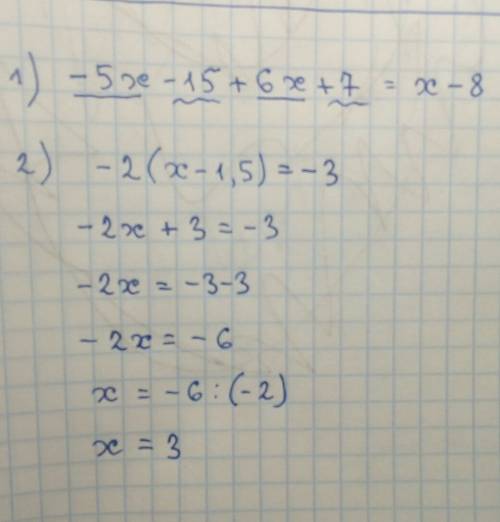 1) -5x - 15 + 6x + 7 = x - 8
2) -2(x - 1,5) = -3
-2x + 3 = -3
-2x = -3-3
-2x = -6
x = -6 : (-2)
x = 3